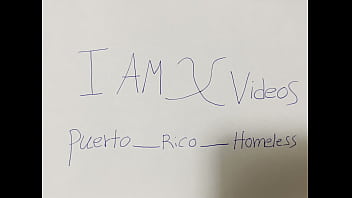 I AM X Videos
Puerto_Rico_Homeless